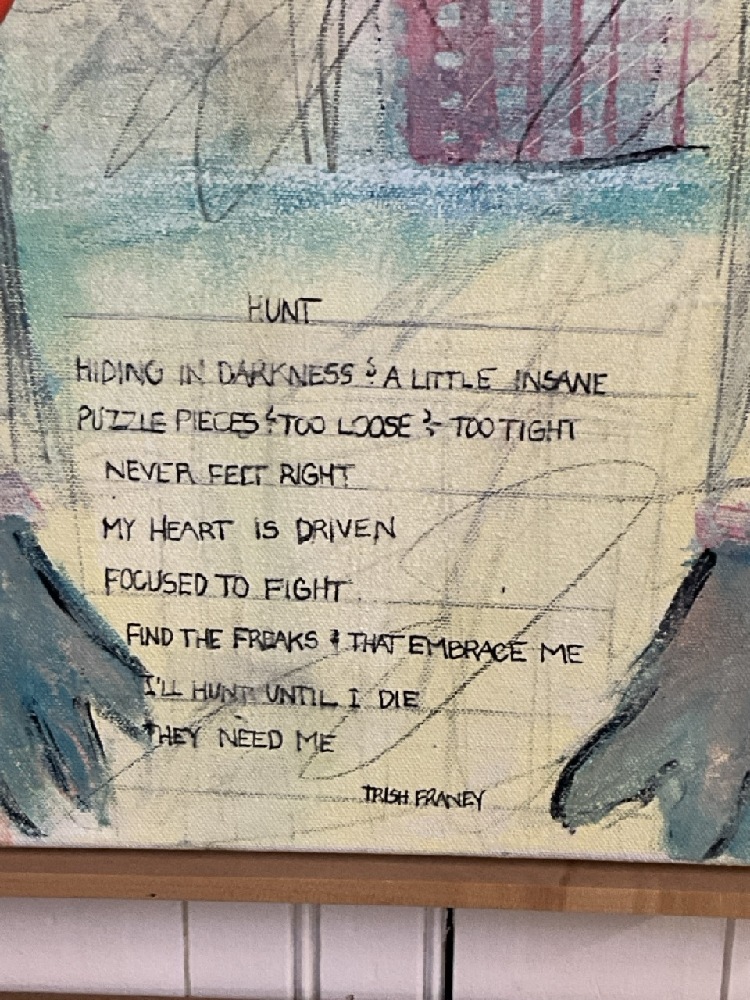 HUNT
HIDING IN DARKNESS & A LITTLE INSANE
PUZZLE PIECES & TOO LOOSE & TOO TIGHT
NEVER FELT RIGHT
MY HEART IS DRIVEN
FOCUSED TO FIGHT
FIND THE FREAKS & THAT EMBRACE ME
I'LL HUNT UNTIL I DIE
THEY NEED ME
TRISH FRANEY